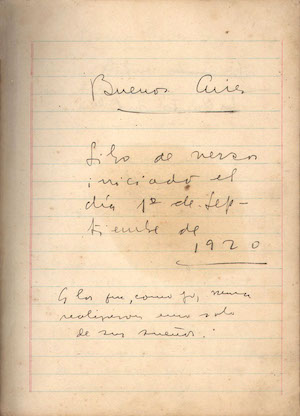 Buenos Aires
Libro de versos
iniciado el
día 1º de Sep-
tiembre de
1920
A los que, como yo, nunca
realizaron uno solo
de sus sueños.